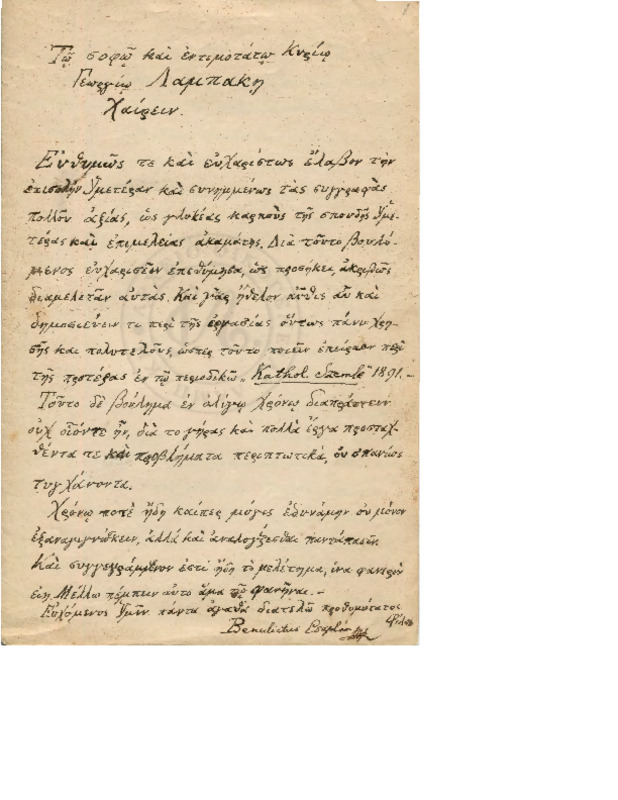 Τῷ σοφῷ καὶ ἐντιμοτάτῳ Κυρίῳ
Γεωργίῳ Λαμπάκῃ
Χαίρειν.
Εὐθυμῶς τε καὶ εὐχαρίστως ἔλαβον τὴν
ἐπιστολὴν Ὑμετέραν καὶ συνημμένως τὰς συγγραφὰς
πολλοῦ ἀξίας, ὡς γλυκέας καρποὺς τῆς σπουδῆς Ὑμε-
τέρας καὶ ἐπιμελείας ἀκαμάτης. Διὰ τοῦτο βουλό-
μενος εὐχαριστεῖν ἐπεθύμησα, ὡς προσήκει, ἀκριβῶς
διαμελετᾶν αὐτάς. Καὶ γὰρ ἤθελον αὖθις αὖ καὶ
δημοσιεύειν τι περὶ τῆς ἐργασίας οὕτως πάνυ χρη-
στῆς καὶ πολυτελοῦς, ὥσπερ τοῦτο ποιεῖν ἐπείρασα περὶ
τῆς προτέρας ἐν τῷ περιοδικῷ „Kathol. Szemle" 1891. –
Τοῦτο δὲ βούλημα ἐν ὀλίγῳ χρόνῳ διαπράττειν
οὐχ οἷόντε ἦν, διὰ το γῆρας καὶ πολλὰ ἔργα προσταχ-
θέντα τε καὶ προβλήματα περιπτωτικά, οὐ σπανίως
τυγχάνοντα.
Χρόνῳ ποτὲ ἤδη καίπερ μόγις ἐδυνάμην οὐ μόνον
ἐξαναγιγνώσκειν, ἀλλὰ καὶ ἀναλογίζεσθαι παντάπασιν
Καὶ συγγεγραμμένον ἐστί ἤδη τὸ μελέτημα, ἵνα φανερὸν
εἴη. Μέλλω πέμπειν αὐτὸ ἅμα τῷ φανῆναι. –
Εὐχόμενος Ὑμῖν πάντα ἀγαθὰ διατελῶ προθυμότατος
φίλος
Benedictus